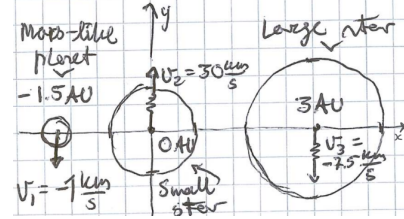 Mars-like
planet
-1.5AU
V₁=-1 km/s
y
V₂=30 km/s
0 AU
Small
star
Large star
3AU
V₃=
-7.5 km/s
x